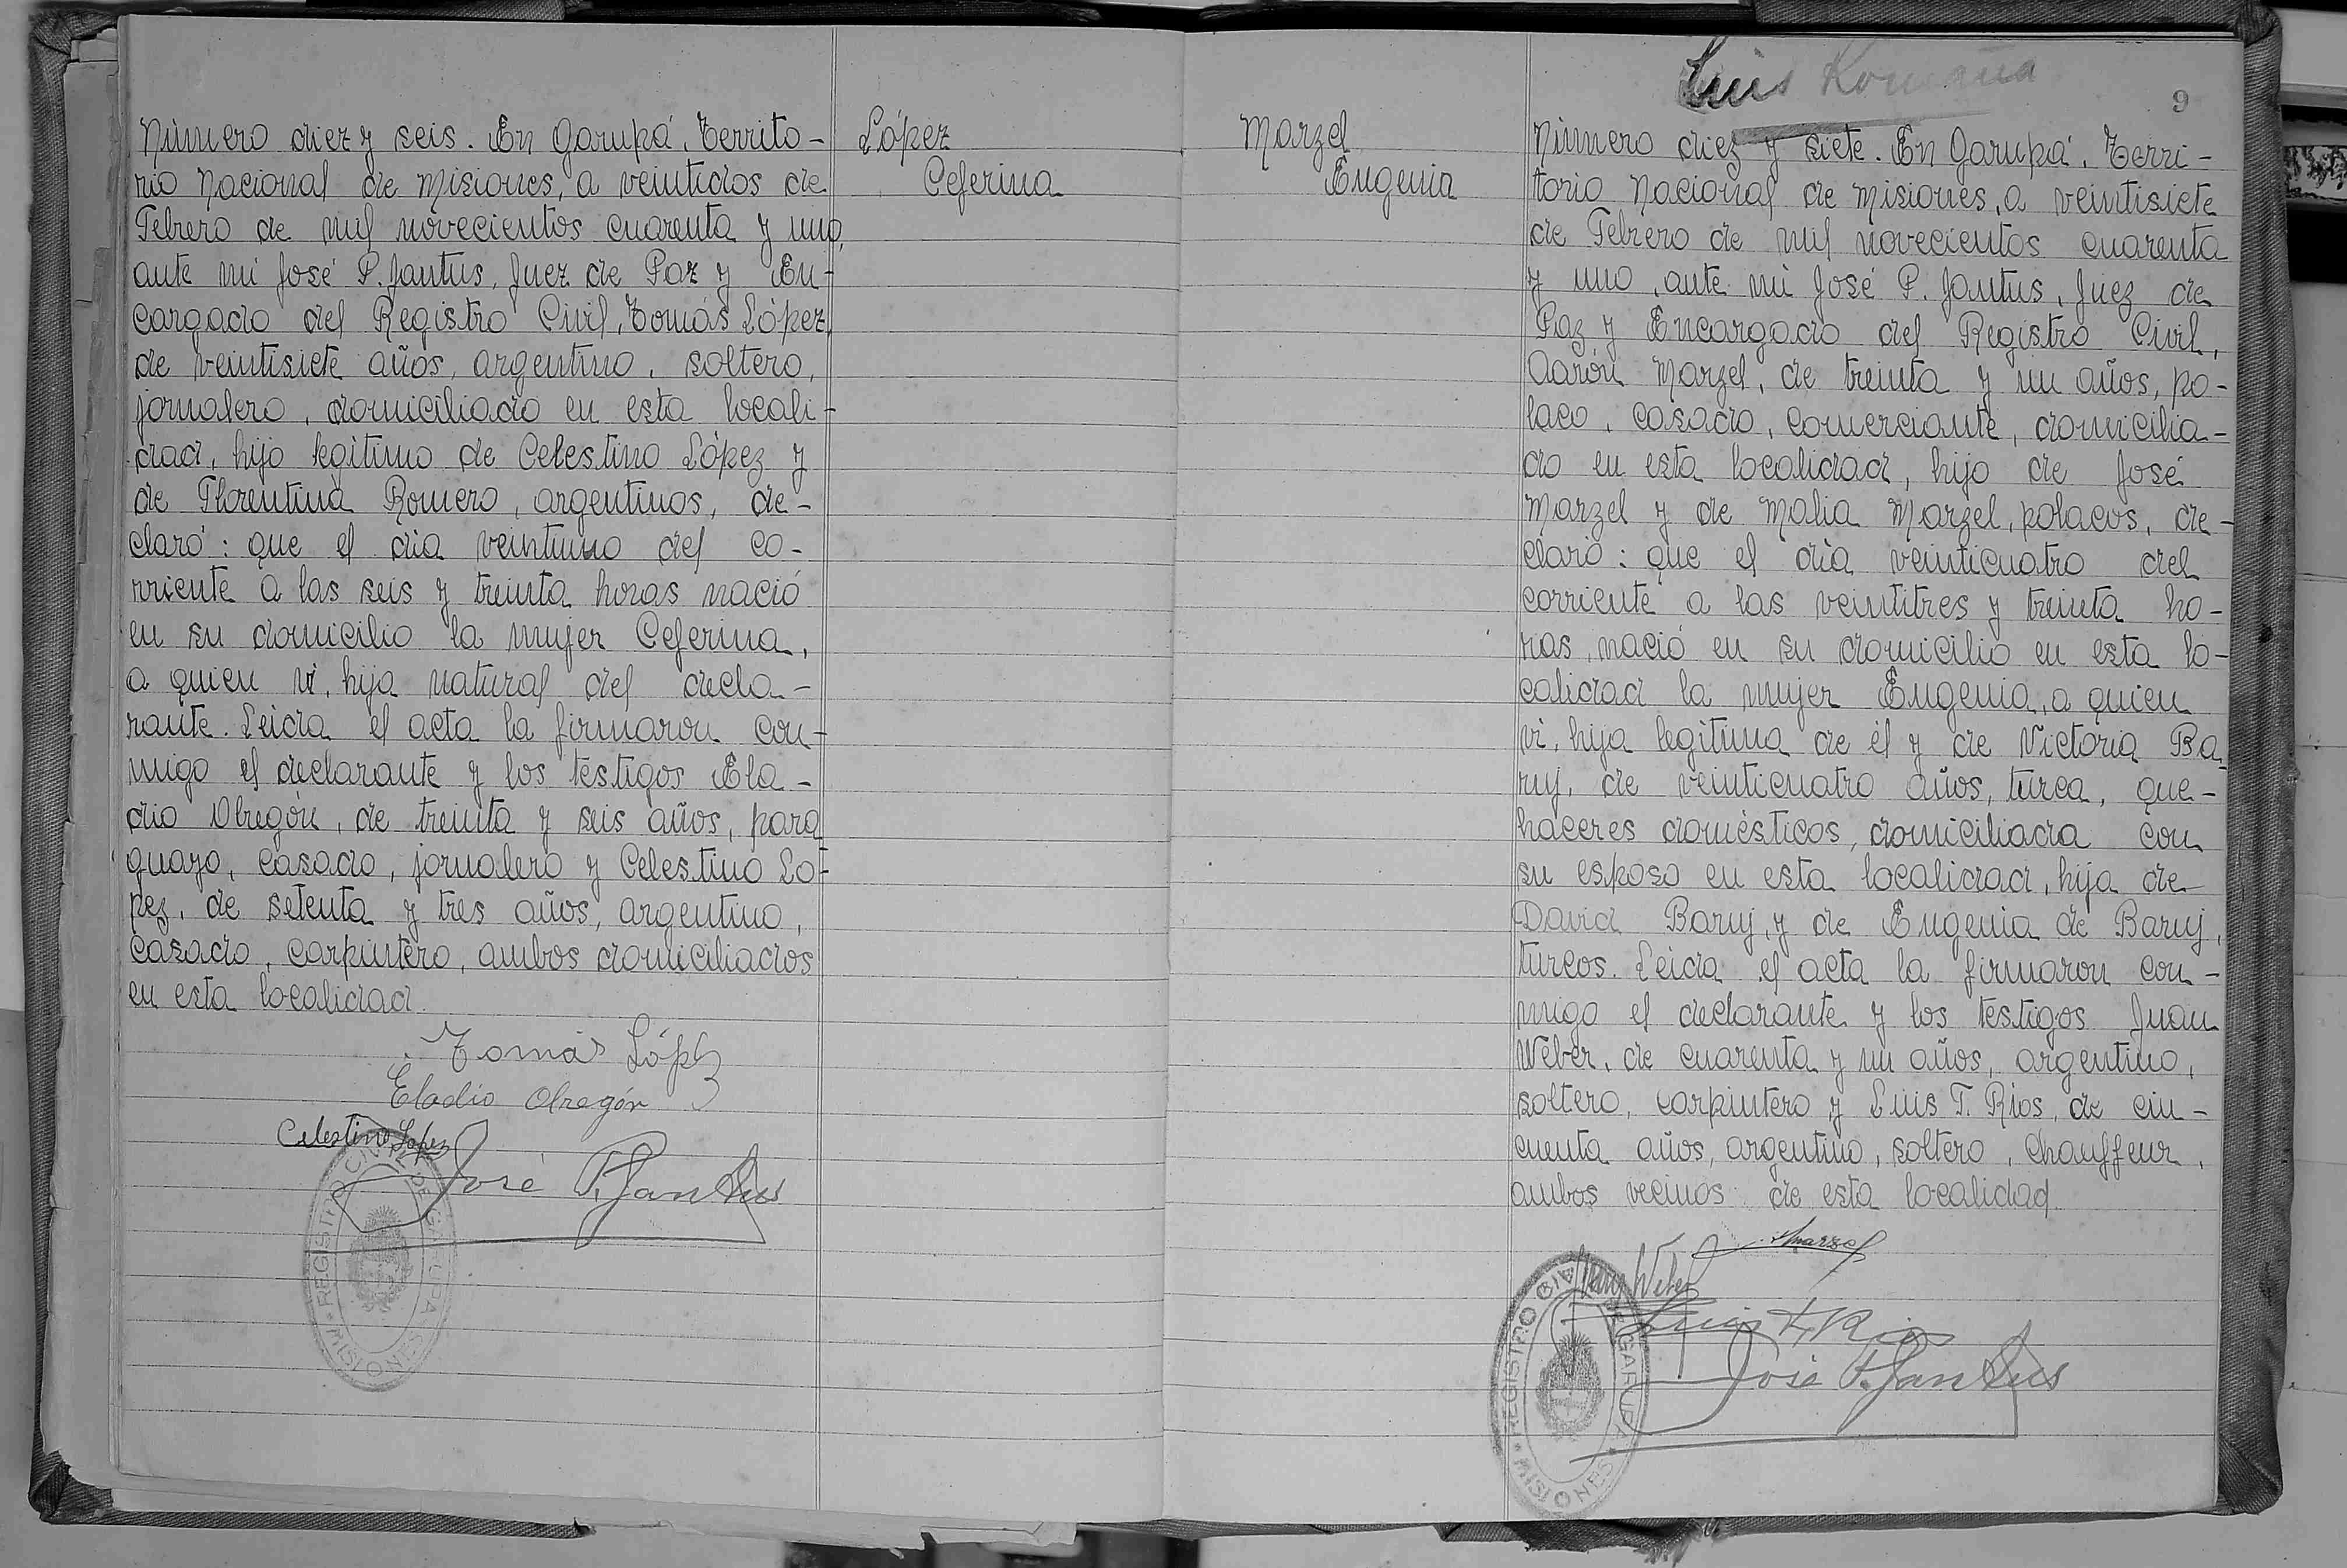 Número diez y seis. En Garupá, Territo-
rio Nacional de Misiones, a veintidos de
Febrero de mil novecientos cuarenta y uno,
ante mi José P. Jantus, Juez de Paz y En-
cargado del Registro Civil, Tomás López,
de veintisiete años, argentino, soltero,
jornalero, domiciliado en esta locali-
dad, hijo legítimo de Celestino López y
de Florentina Romero, argentinos, de-
claró: que el dia veintiuno del co-
rriente a las seis y treinta horas nació
en su domicilio la mujer Ceferina,
a quien vi, hija natural del decla-
rante. Leida el acta la firmaron con-
migo el declarante y los testigos Ela-
dio Obregón, de treinta y seis años, para
guayo, casado, jornalero y Celestino Ló-
pez, de setenta y tres años, argentino,
casado, carpintero, ambos domiciliados
en esta localidad.
Tomás López
Eladio Obregón
Celestino Lopez
José P. Jantus
REGISTRO CIVIL DE GARUPA
MISIONES
López
Ceferina
Marzel
Eugenia
Luis Romaña
9
Número diez y siete. En Garupá, Terri-
torio Nacional de Misiones, a veintisiete
de Febrero de mil novecientos cuarenta
y uno, ante mi José P. Jantus, Juez de
Paz y Encargado del Registro Civil,
Aarón Marzel, de treinta y un años, po-
laco, casado, comerciante, domicilia-
do en esta localidad, hijo de José
Marzel y de Malia Marzel, polacos, de-
claró: que el día veinticuatro del
corriente a las veintitres y treinta ho-
ras, nació en su domicilio en esta lo-
calidad la mujer Eugenia, a quien
vi, hija legítima de él y de Victoria Ba
ruj, de veinticuatro años, turca, que-
haceres domésticos, domiciliada con
su esposo en esta localidad, hija de
David Baruj, y de Eugenia de Baruj,
turcos. Leida el acta la firmaron con-
migo el declarante y los testigos Juan
Weber, de cuarenta y un años, argentino,
soltero, carpintero y Luis F. Ríos, de cin-
cuenta años, argentino, soltero, chauffeur,
ambos vecinos de esta localidad.
AMarzel
Juan Weber
Luis F. Rios
José P. Jantus
REGISTRO CIVIL DE GARUPA
MISIONES